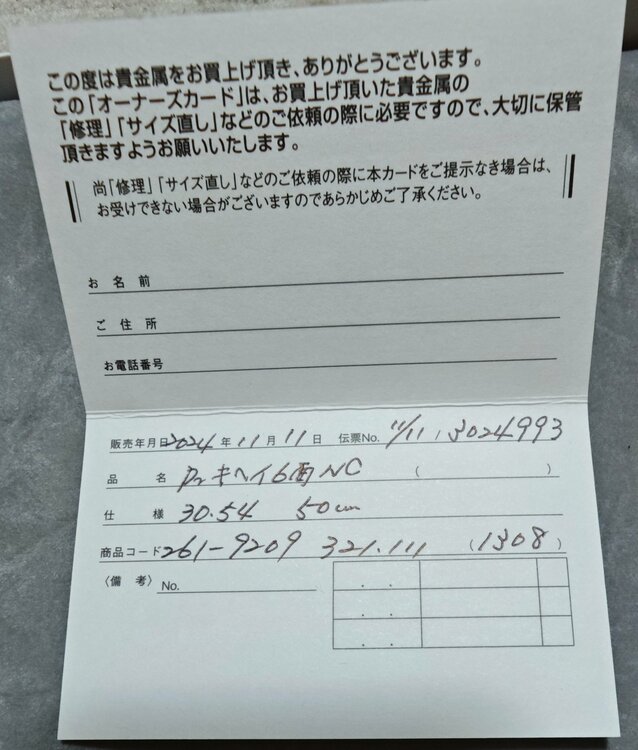 この度は貴金属をお買上げ頂き、ありがとうございます。
この「オーナーズカード」は、お買上げ頂いた貴金属の
「修理」「サイズ直し」などのご依頼の際に必要ですので、大切に保管
頂きますようお願いいたします。
尚「修理」「サイズ直し」などのご依頼の際に本カードをご提示なき場合は、
お受けできない場合がございますのであらかじめご了承ください。
お名前
ご住所
お電話番号
販売年月日 2024年11月11日 伝票No. 11/11, 3024993
品名 キヘイ6面NC ( )
仕様 30.54 50cm
商品コード 261-9209 321.111 (1308)
〈備考〉 No.